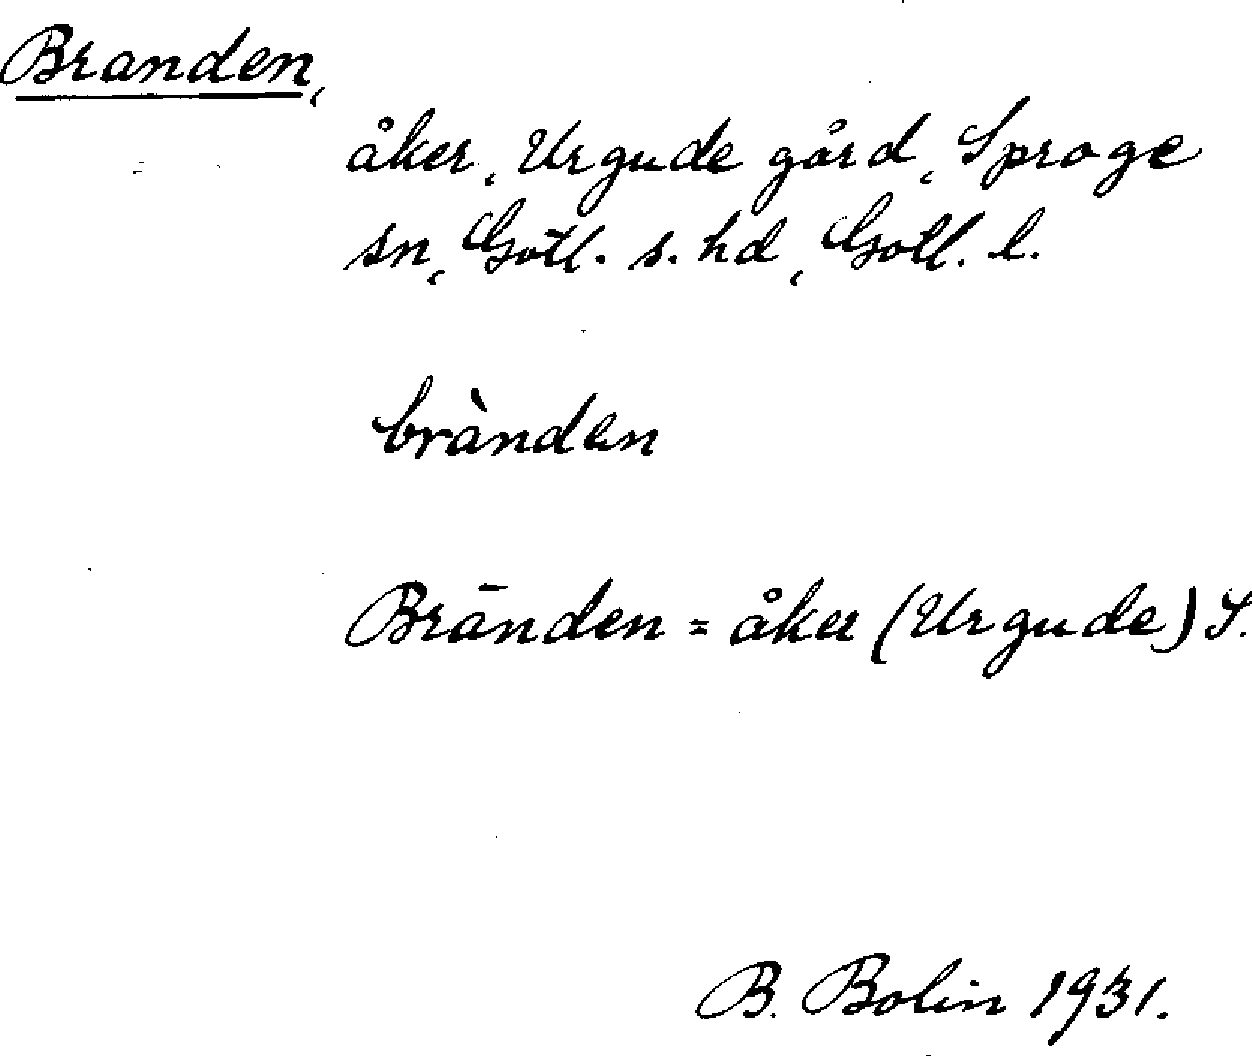 Branden,
åker, Urgude gård, Sproge
sn, Gotl. s. hd, Gotl. l.
brànden
Brānden = åker (Urgude) S.
B. Bolin 1931.